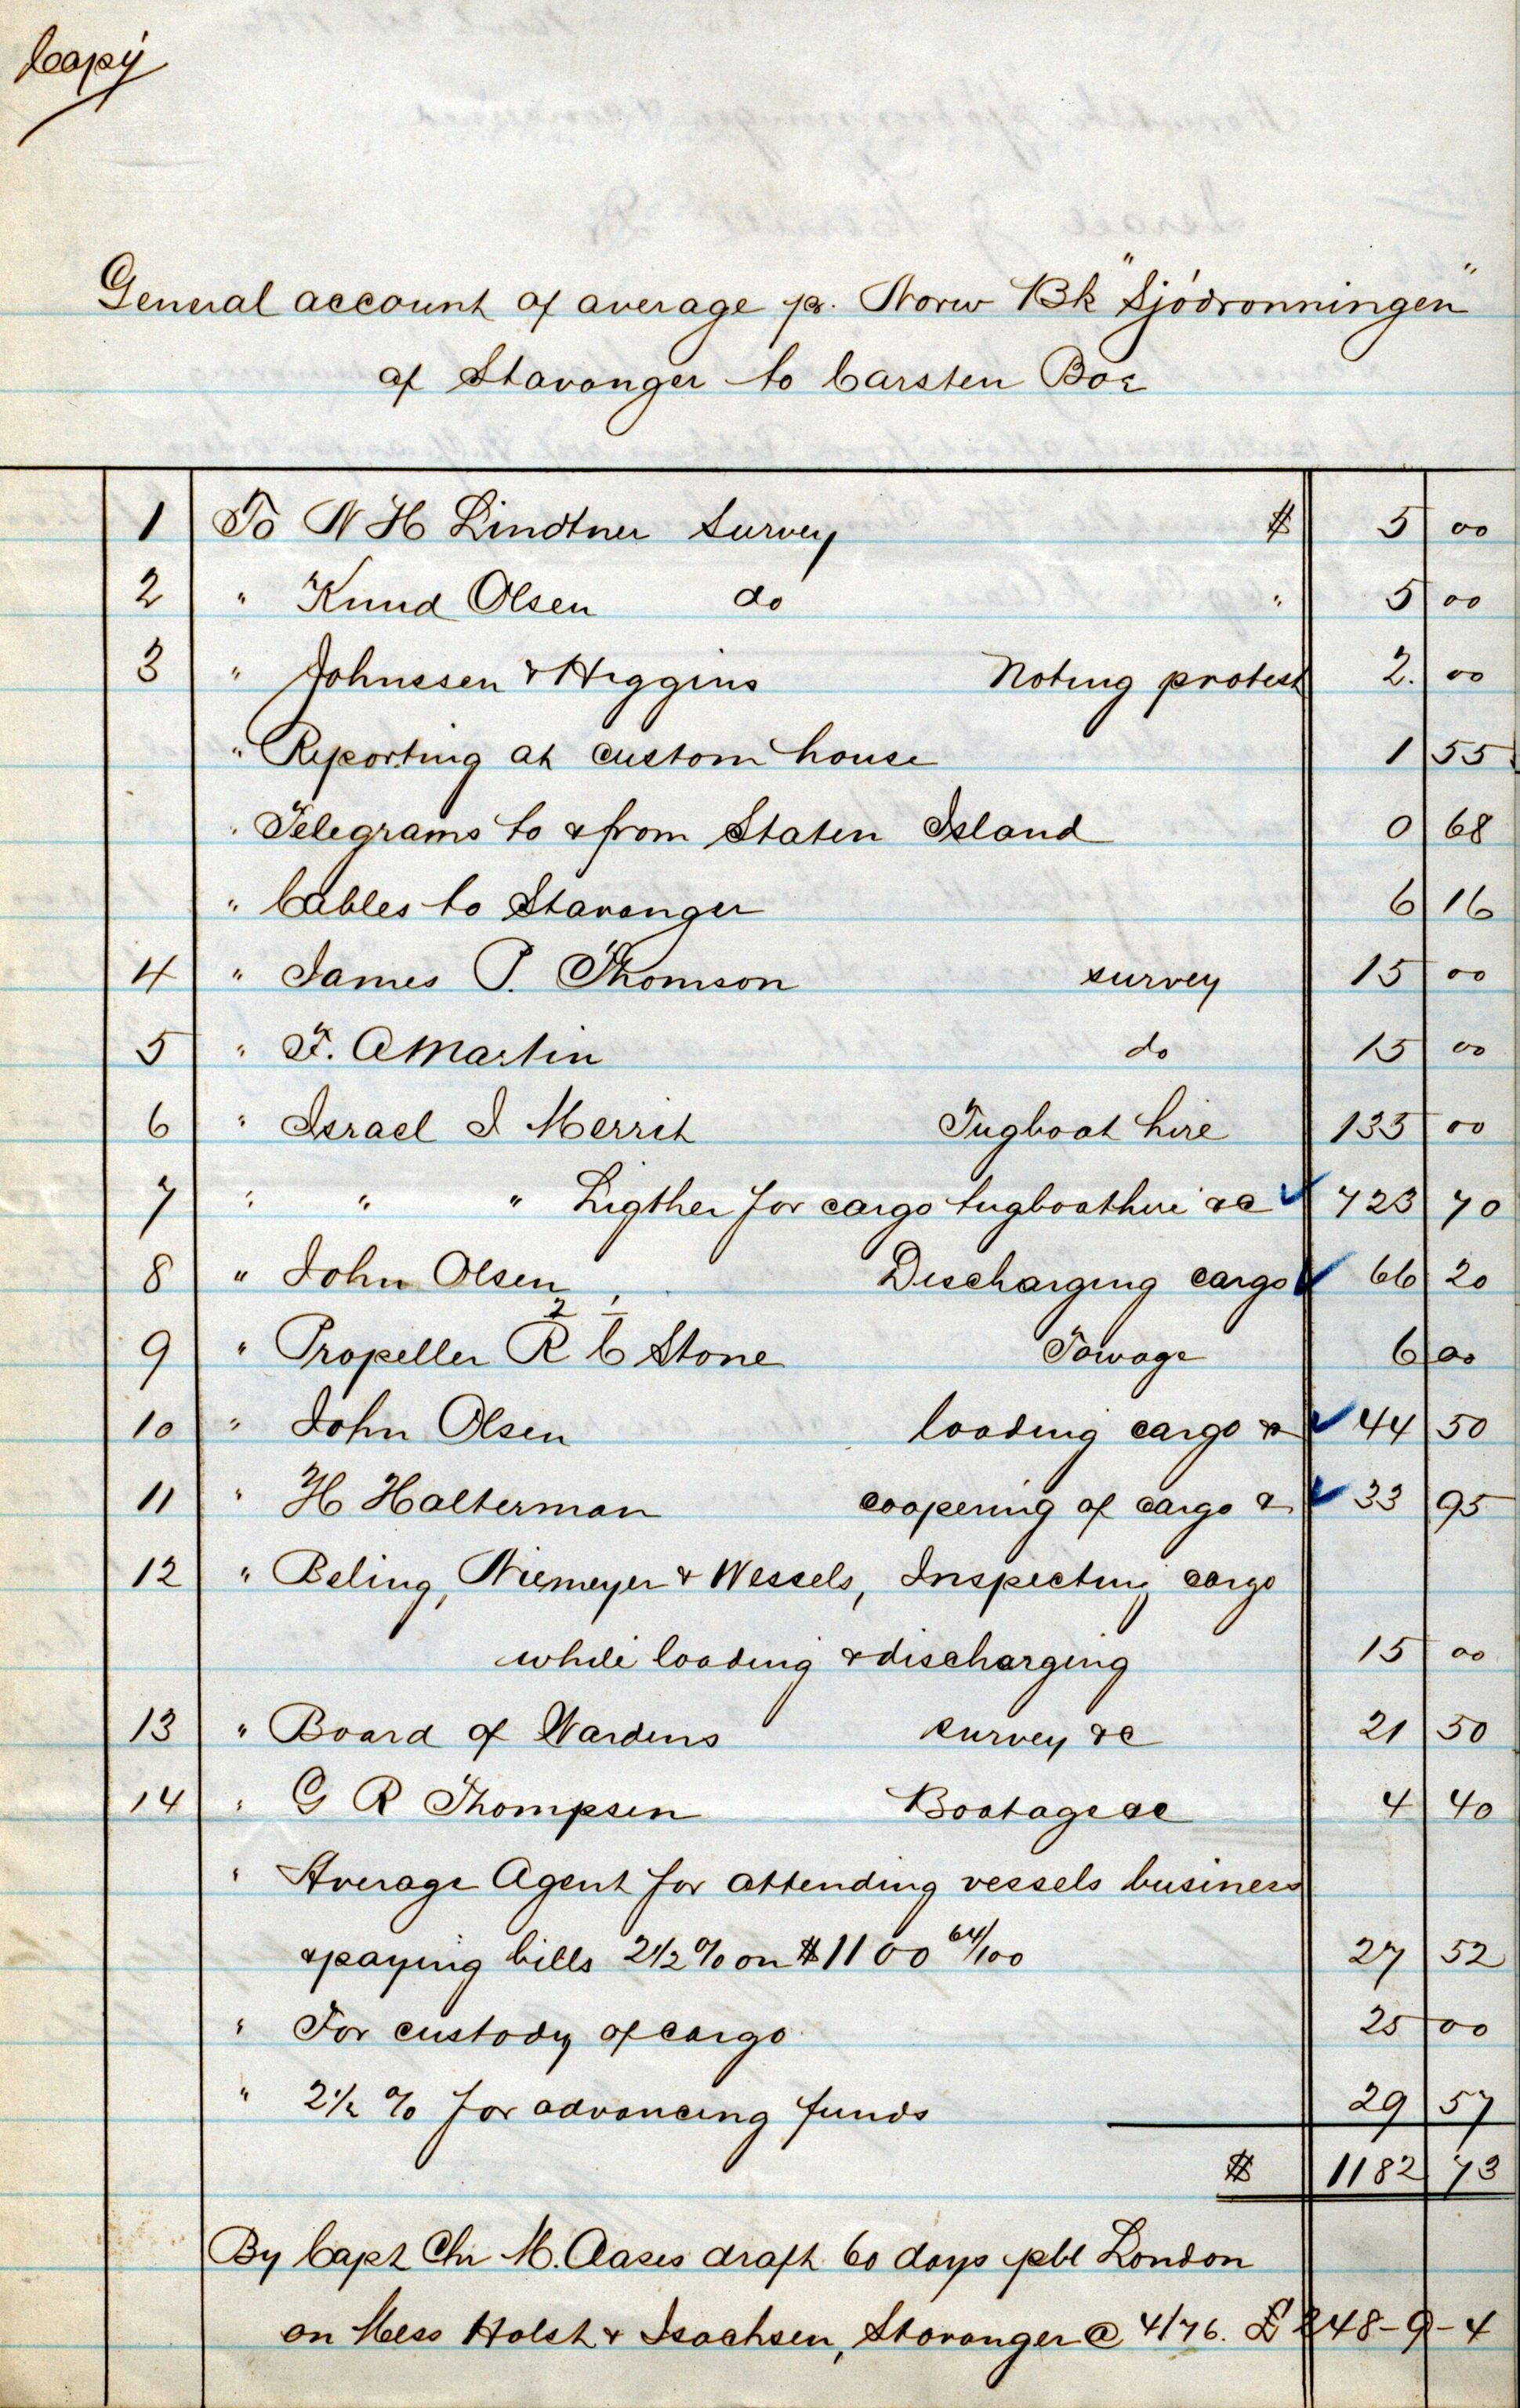 Copy
General account of average pr. Norw Bk "Sjödronningen"
of Stavanger to Carsten Boe
1 To N H Lindtner Survey $ 5 00
2 " Knud Olsen do " 5 00
3 " Johnssen & Higgins Noting protest 2. 00
" Reporting at custom house 1 55
" Telegrams to & from Staten Island 0 68
" Cables to Stavanger 6 16
4 " James P. Thomson survey 15 00
5 " F. A Martin do 15 00
6 " Israel J Merrit Tugboat hire 135 00
7 " " " Ligther for cargo tugboathire &c ✓ 723 70
8 " John Olsen Discharging cargo ✓ 66 20
2 1
9 " Propeller R C Stone Towage 6 00
10 " John Olsen loading cargo & ✓ 44 50
11 " H Halterman coopering of cargo & ✓ 33 95
12 " Beling, Niemeyer & Wessels, Inspecting cargo
while loading & discharging 15 00
13 " Board of Wardens survey &c 21 50
14 " G R Thompsen Boatage &c 4 40
" Average Agent for attending vessels business
& paying bills 2 1/2 % on $ 1100 64/100 27 52
" For custody of cargo 25 00
" 2 1/2 % for advancing funds 29 57
$ 1182 73
By Capt Chr M. Aases draft 60 days pbl London
on Mess Holst & Isachsen, Stavanger @ 4/76. £ 248-9-4